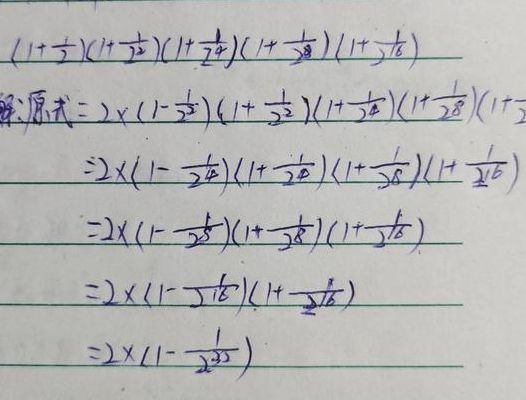 (1+1/2)(1+1/2²)(1+1/2⁴)(1+1/2⁸)(1+1/2¹⁶)
解:原式=2×(1-1/2²)(1+1/2²)(1+1/2⁴)(1+1/2⁸)(1+1/2
=2×(1-1/2⁴)(1+1/2⁴)(1+1/2⁸)(1+1/2¹⁶)
=2×(1-1/2⁸)(1+1/2⁸)(1+1/2¹⁶)
=2×(1-1/2¹⁶)(1+1/2¹⁶)
=2×(1-1/2³²)